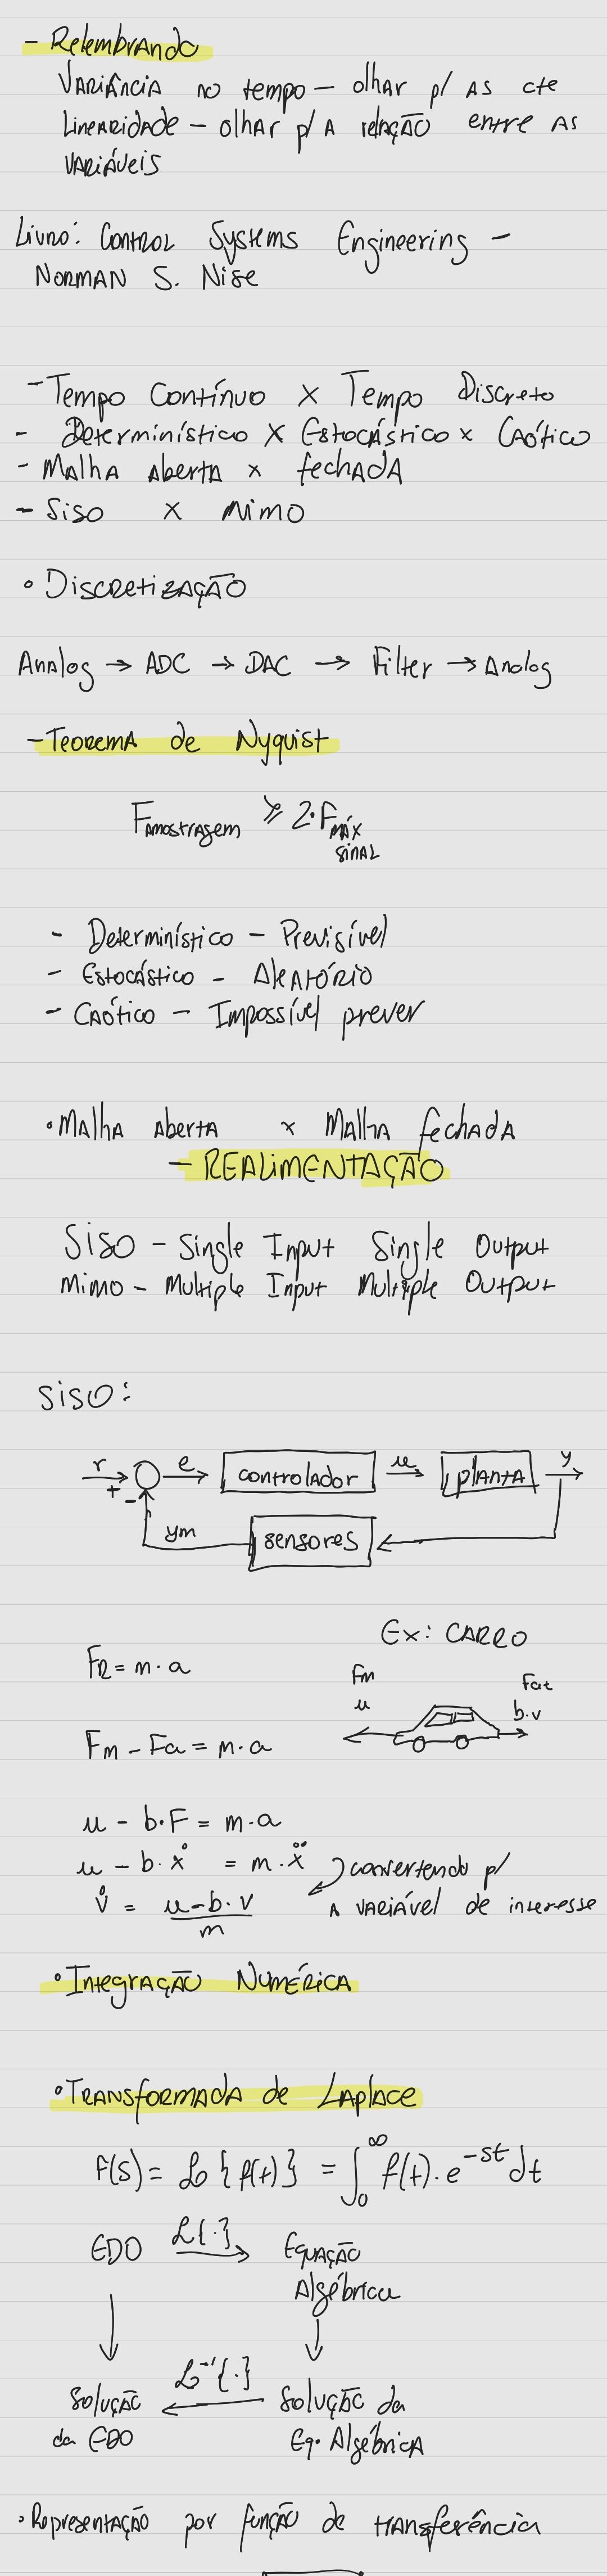 - Relembrando
Variância no tempo – olhar p/ as cte
Linearidade – olhar p/ a relação entre as
variáveis
Livro: Control Systems Engineering –
Norman S. Nise
- Tempo Contínuo x Tempo Discreto
- Determinístico x Estocástico x Caótico
- Malha aberta x fechada
- Siso x mimo
• Discretização
Analog → ADC → DAC → Filter → Analog
- Teorema de Nyquist
Famostragem ≥ 2·Fmáx
sinal
- Determinístico – Previsível
- Estocástico – Aleatório
- Caótico – Impossível prever
• Malha aberta x Malha fechada
- REALIMENTAÇÃO
SISO – Single Input Single Output
mimo – Multiple Input Multiple Output
SISO:
r + - e controlador u planta y
ym sensores
Ex: CARRO
FR = m·a
Fm Fat
u b·v
Fm – Fa = m·a
u – b·F = m·a
u – b·ẋ = m·ẍ convertendo p/
v̇ = u–b·v a variável de interesse
m
• Integração Numérica
• Transformada de Laplace
f(s) = ℒ{f(t)} = ∫₀^∞ f(t)·e^–st dt
EDO ℒ{·} Equação
Algébrica
Solução ℒ⁻¹{·} Solução da
da EDO Eq. Algébrica
• Representação por função de transferência